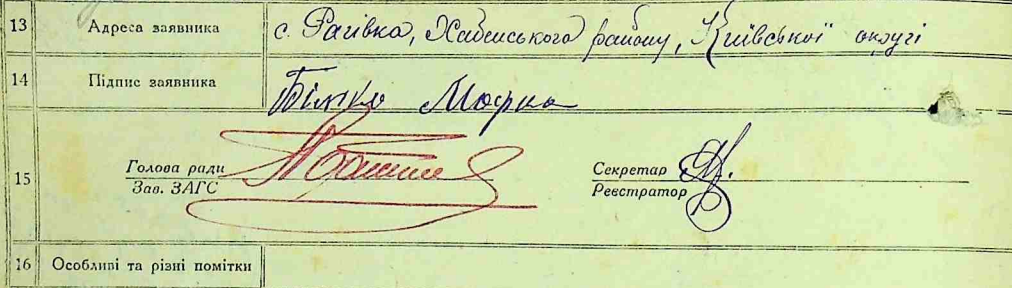 13 Адреса заявника с. Рагівка, Хабенського району, Київської округи
14 Підпис заявника Білко Марфа
15 Голова ради Секретар
Зав. ЗАГС Реєстратор
16 Особливі та різні помітки